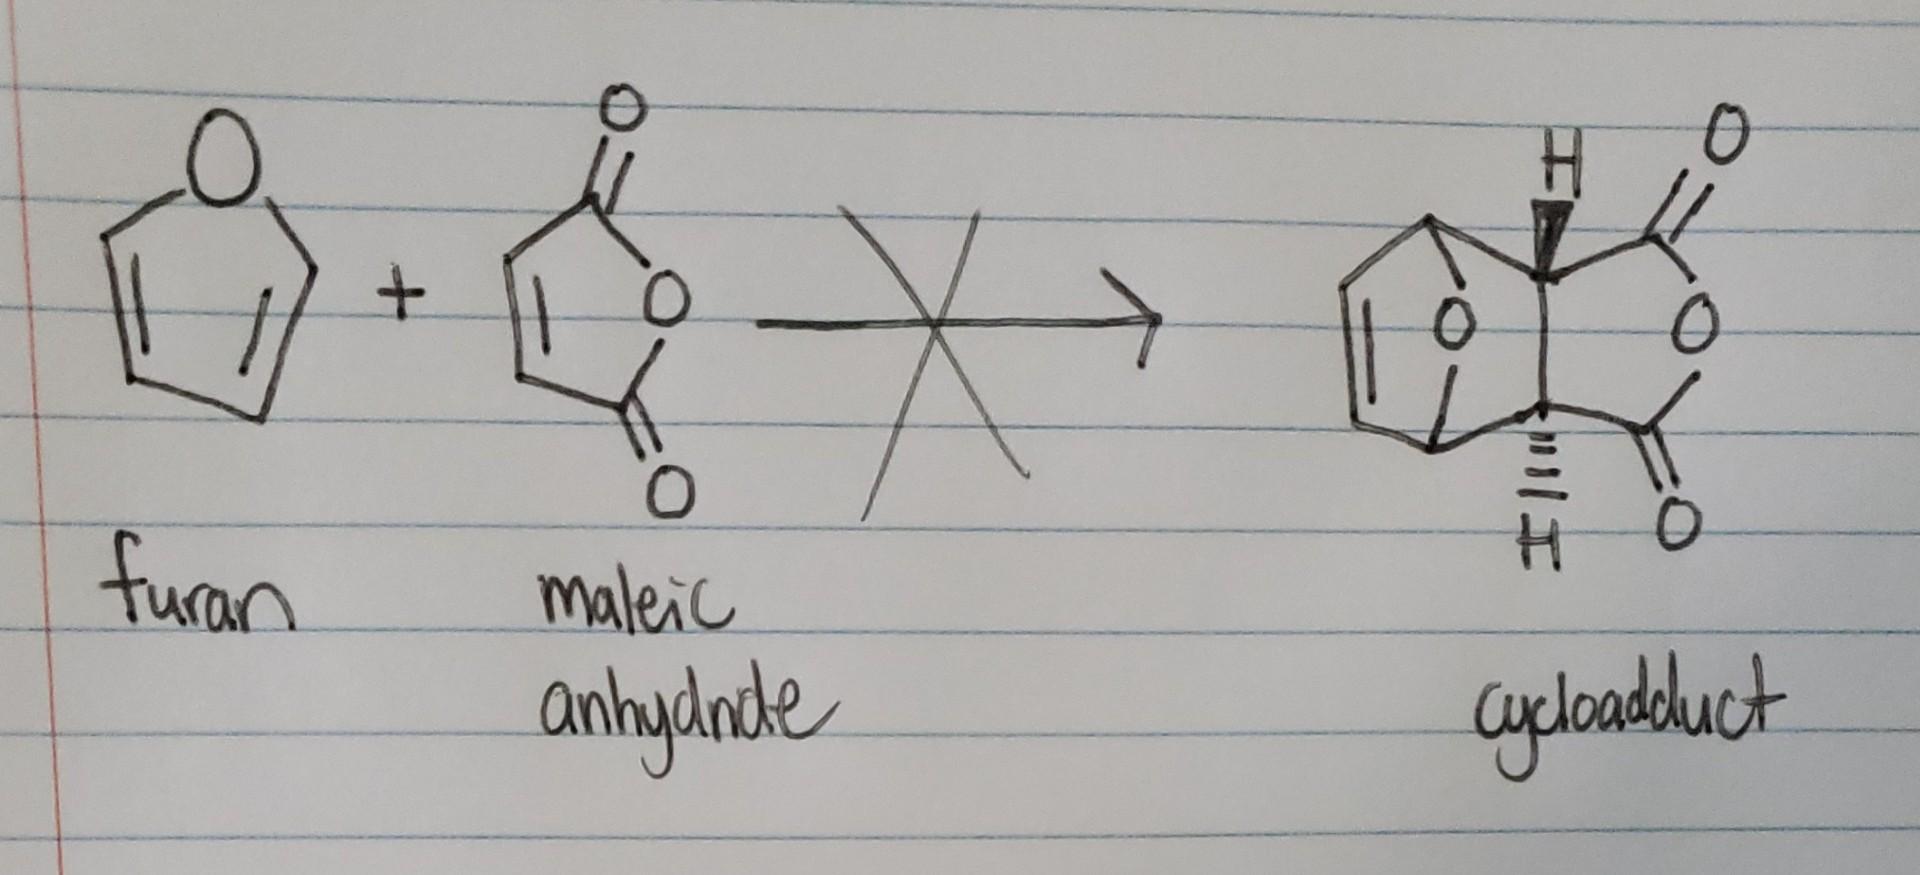 O
O
+
O
O
H
O
O
O
O
H
furan
maleic
anhydride
cycloadduct